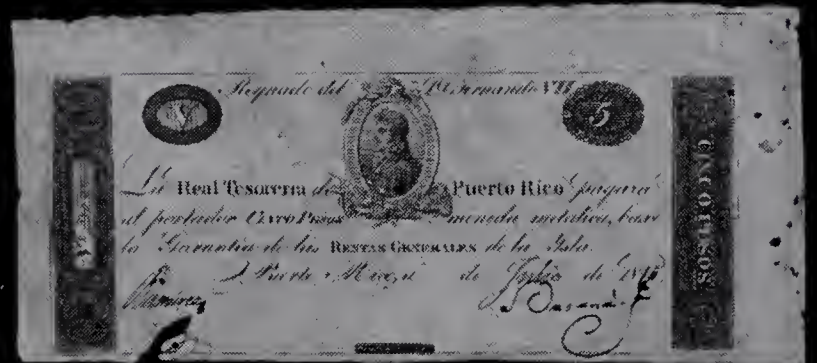 Reynado del Sr. Dn. Fernando VII
V 5
La Real Tesoreria de Puerto Rico pagará
al portador CINCO PESOS moneda metálica, bajo
la Garantia de las RENTAS GENERALES de la Isla.
Puerto Rico, de Julio de
Ramirez
CINCO PESOS